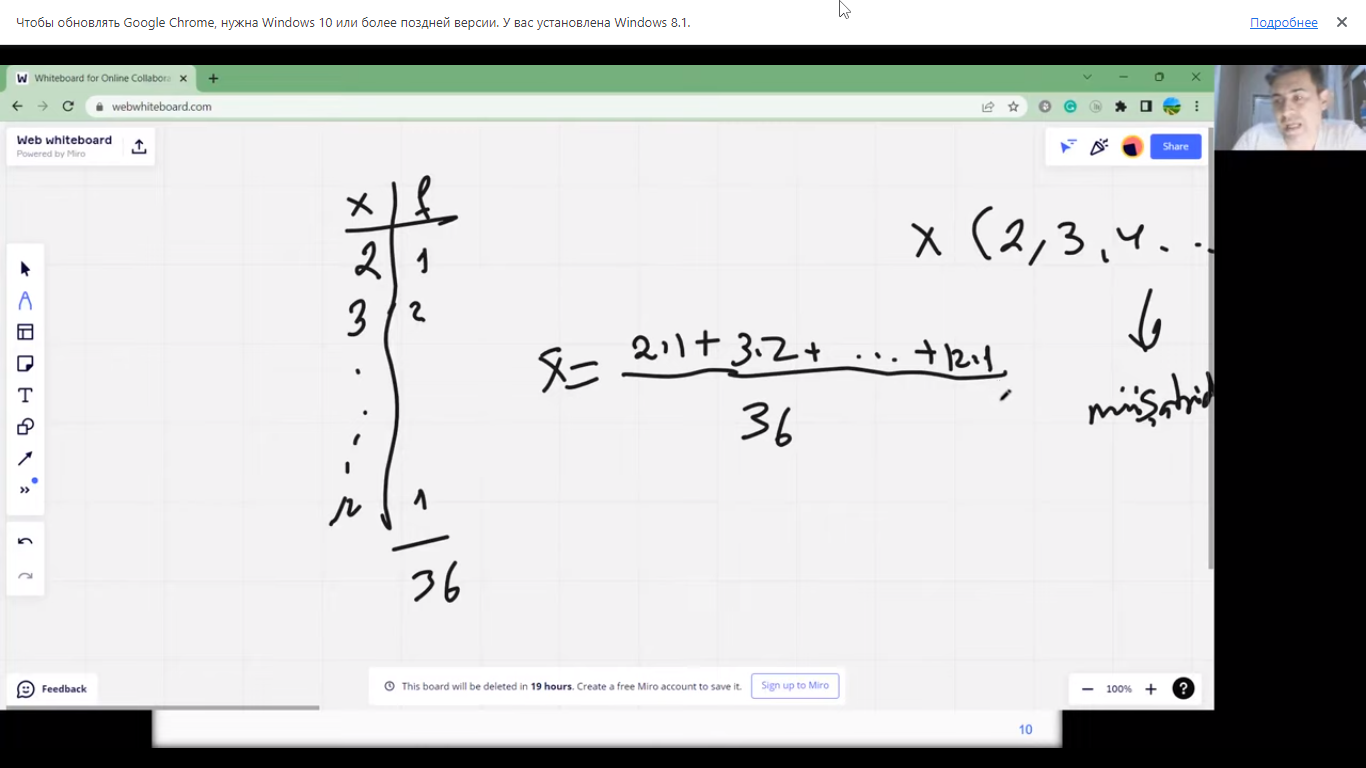 Чтобы обновлять Google Chrome, нужна Windows 10 или более поздней версии. У вас установлена Windows 8.1.
Подробнее
Whiteboard for Online Collabora
webwhiteboard.com
Web whiteboard
Powered by Miro
Share
x f
2 1
3 2
12 1
36
x̄ = 2.1 + 3.2 + ... + 12.1
36
X (2, 3, 4. ..
müşahid
Feedback
This board will be deleted in 19 hours. Create a free Miro account to save it.
Sign up to Miro
100%
10